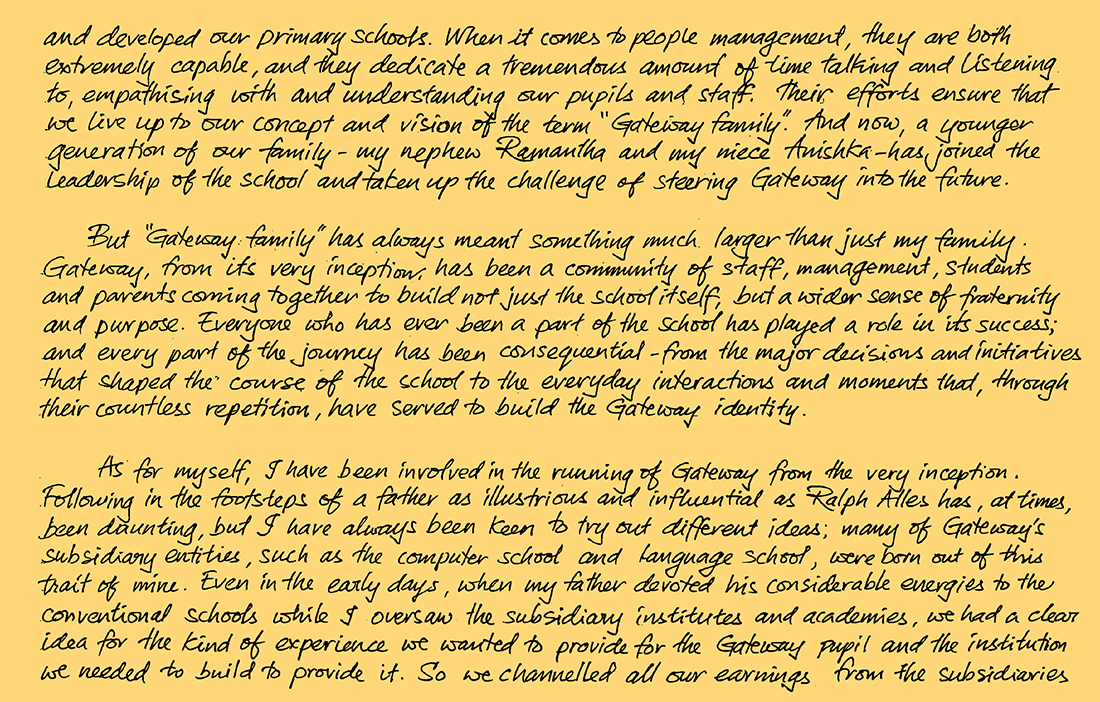 and developed our primary schools. When it comes to people management, they are both
extremely capable, and they dedicate a tremendous amount of time talking and listening
to, empathising with and understanding our pupils and staff. Their efforts ensure that
we live up to our concept and vision of the term "Gateway family". And now, a younger
generation of our family - my nephew Ramantha and my niece Anishka - has joined the
leadership of the school and taken up the challenge of steering Gateway into the future.
But "Gateway family" has always meant something much larger than just my family.
Gateway, from its very inception, has been a community of staff, management, students
and parents coming together to build not just the school itself, but a wider sense of fraternity
and purpose. Everyone who has ever been a part of the school has played a role in its success;
and every part of the journey has been consequential - from the major decisions and initiatives
that shaped the course of the school to the everyday interactions and moments that, through
their countless repetition, have served to build the Gateway identity.
As for myself, I have been involved in the running of Gateway from the very inception.
Following in the footsteps of a father as illustrious and influential as Ralph Alles has, at times,
been daunting, but I have always been keen to try out different ideas; many of Gateway's
subsidiary entities, such as the computer school and language school, were born out of this
trait of mine. Even in the early days, when my father devoted his considerable energies to the
conventional schools while I oversaw the subsidiary institutes and academies, we had a clear
idea for the kind of experience we wanted to provide for the Gateway pupil and the institution
we needed to build to provide it. So we channelled all our earnings from the subsidiaries